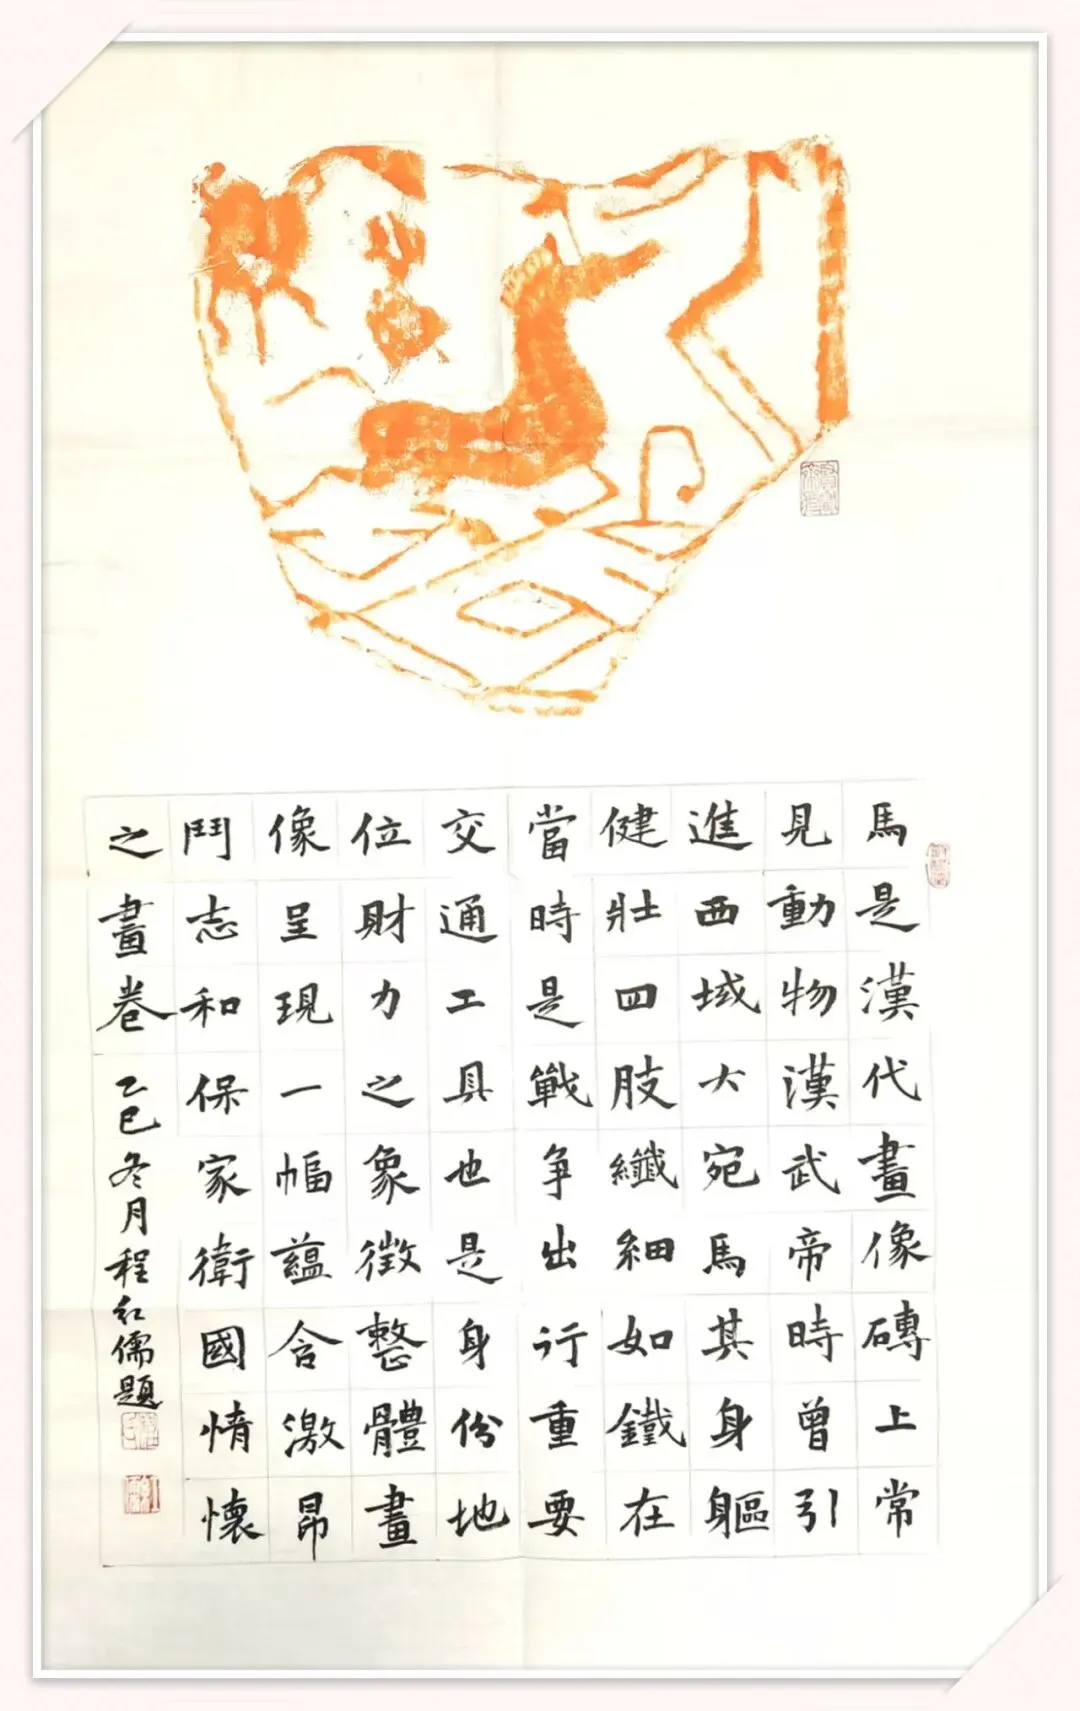 馬是漢代畫像磚上常
見動物漢武帝時曾引
進西域大宛馬其身軀
健壯四肢纖細如鐵在
當時是戰争出行重要
交通工具也是身份地
位財力之象徵整體畫
像呈現一幅蘊含激昂
鬥志和保家衛國情懷
之畫卷乙巳冬月程紅儒題